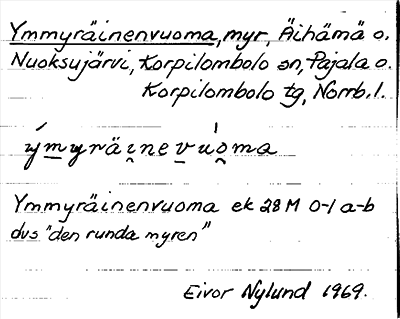 Ymmyräinenvuoma, myr, Äihämä o.
Nuoksujärvi, Korpilombolo sn, Pajala o.
Korpilombolo tg, Norrb. l.
ým̲yräi̯nev̲u̍o̯ma
Ymmyräinenvuoma ek 28 M 0-1 a-b
dvs "den runda myren"
Eivor Nylund 1969.